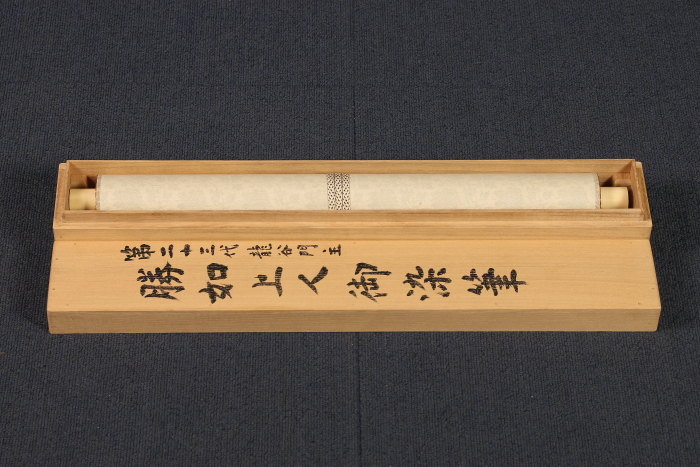 第二十三代 龍谷門主
勝如上人御染筆